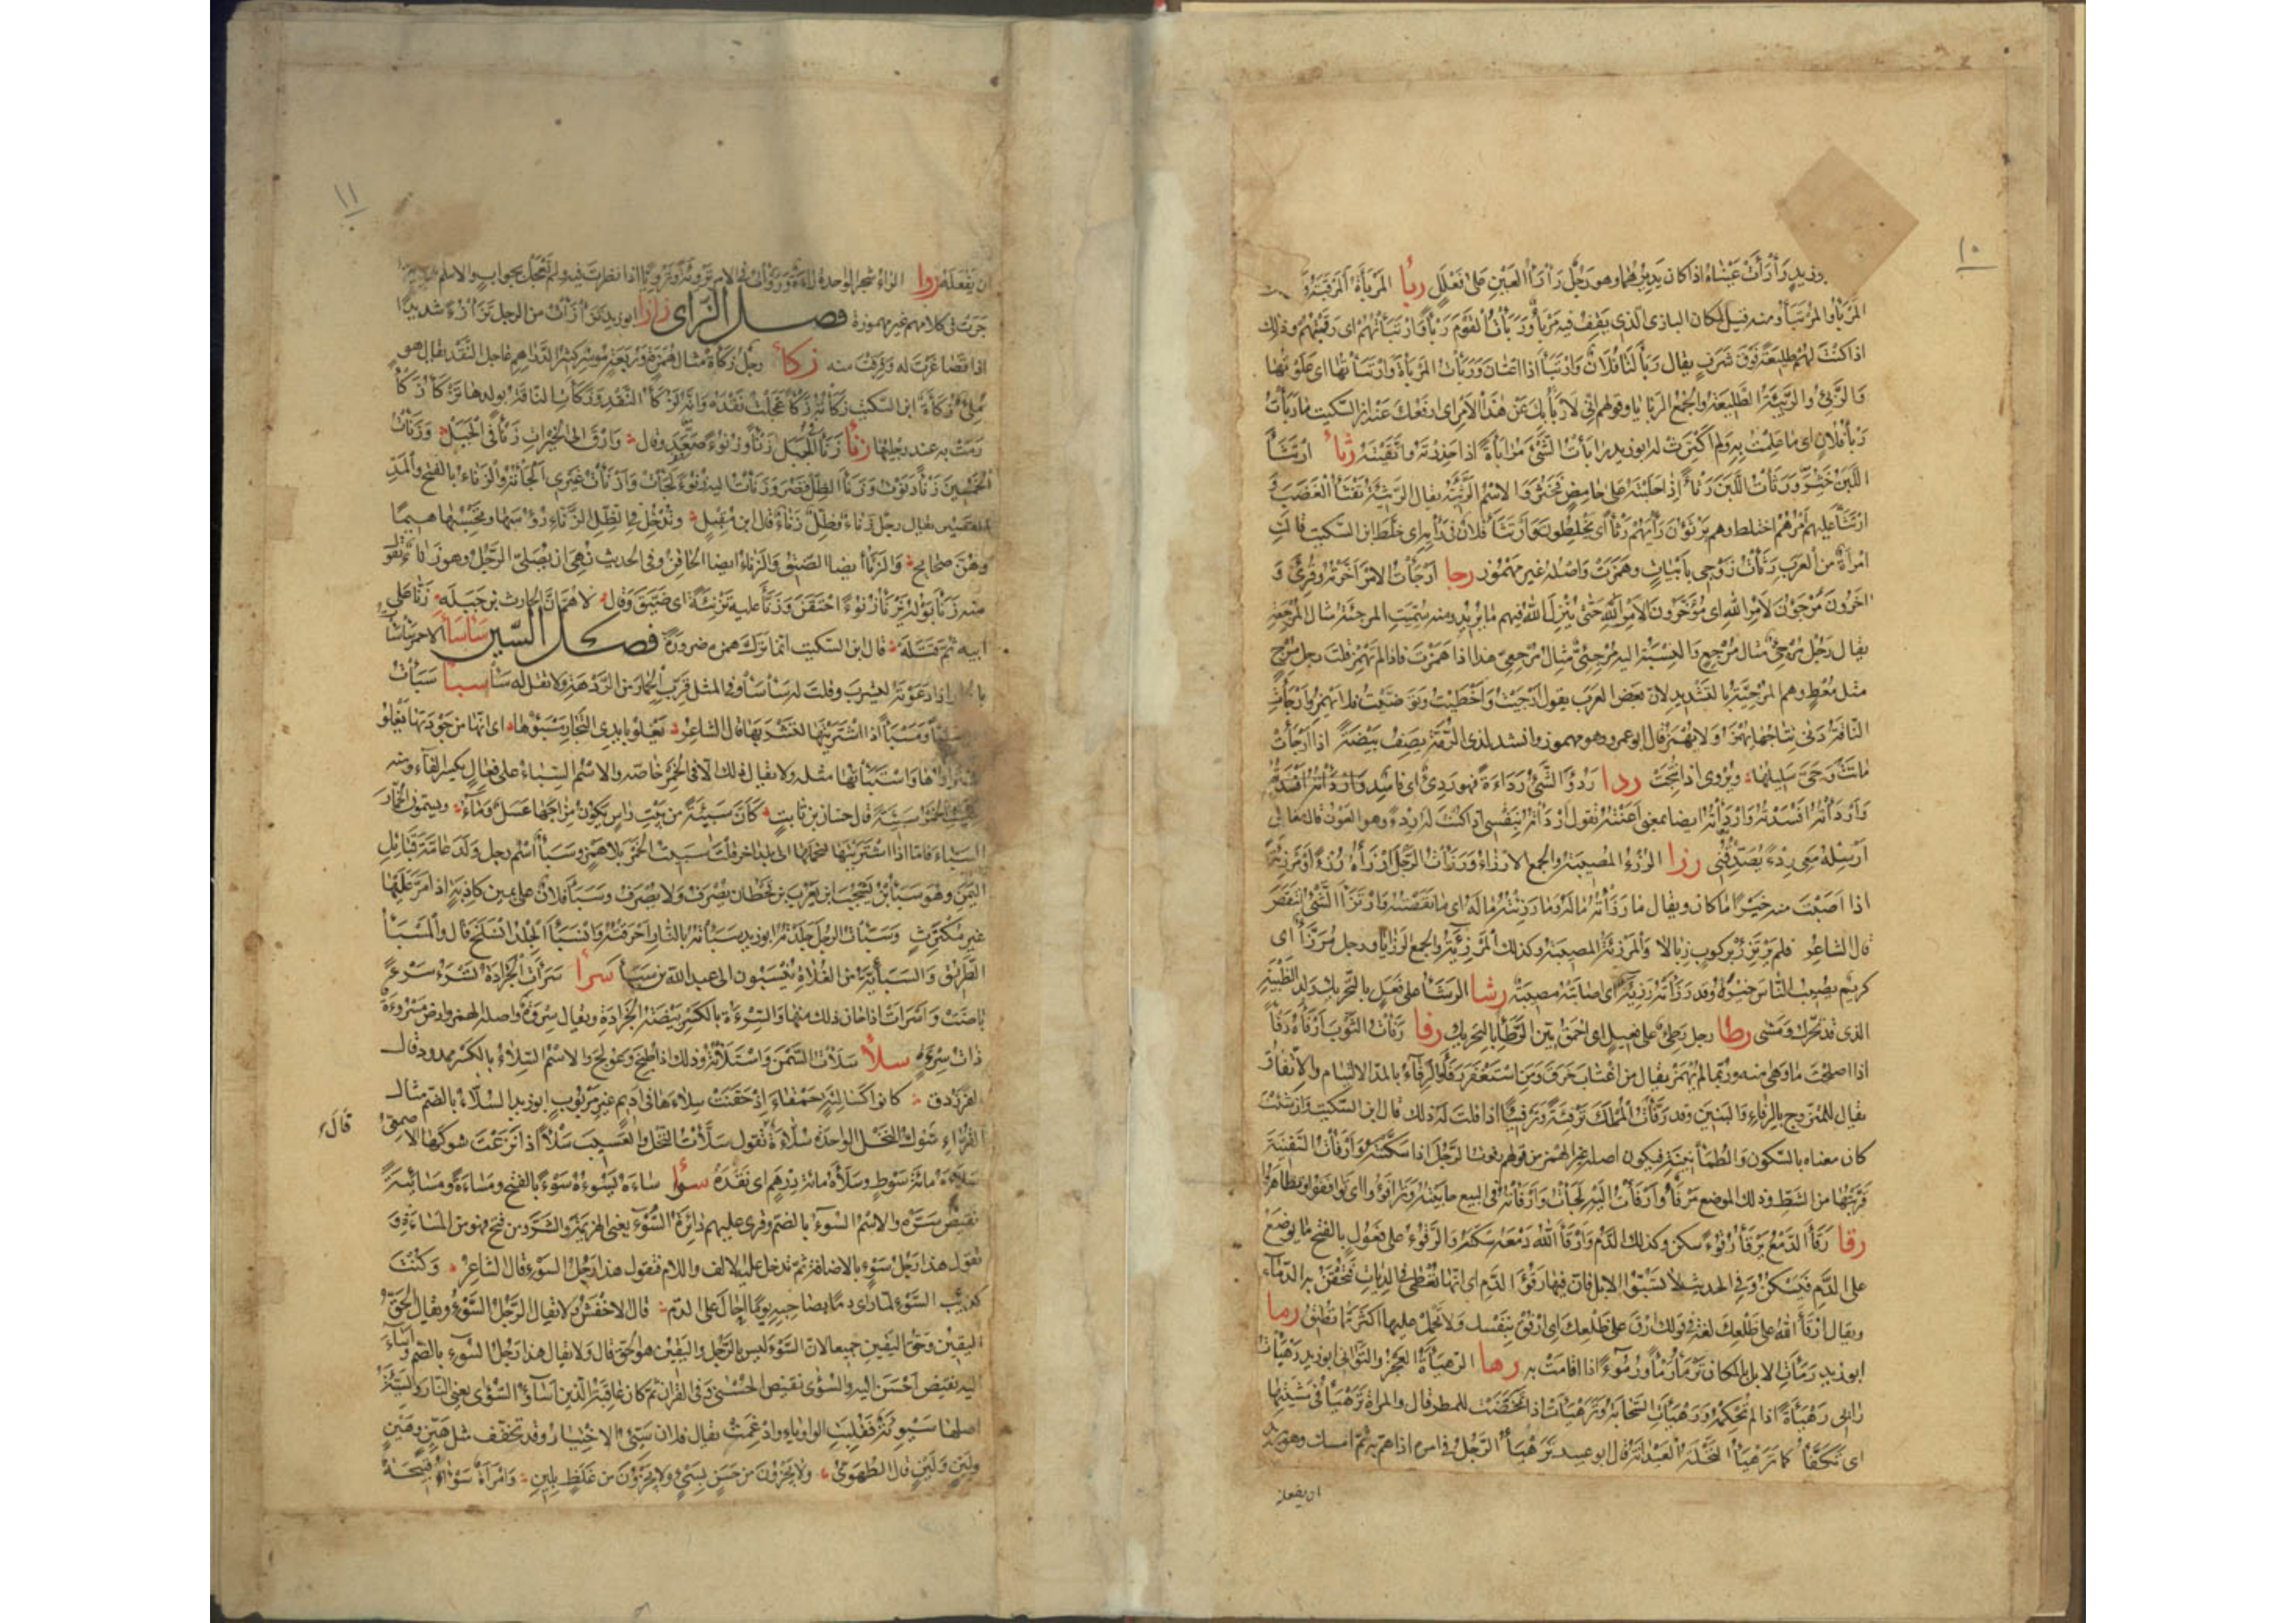 ١٠
زيد رَأْرَأَتْ عَيْنَاهُ اذا كان يديرهما وهو رجل رَأْرَأُ العَيْنِ على فَعْلَلٍ ربأ المَرْبَأَةُ المَرْقَبَةُ
المَرْبَأُ والمُرْتَبَأُ ومنه قيل لمكان البازى الذى يقف فيه مَرْبَأٌ وَرَبَأْتُ القَوْمَ رَبْأً وارْتَبَأْتُهُمْ اى رقبتهم وذلك
اذا كنت لهم طليعة فوق شرف يقال رَبَأَ لنا فلان وارْتَبَأَ اذا اعْتَانَ وَرَبَأْتُ المَرْبَأَةَ وارْتَبَأْتُهَا اى علوتها
والرَّبِئُ والرَّبِيئَةُ الطليعة والجمع الربايا وقولهم انى لَأَرْبَأُ بِكَ عن هذا الامر اى ارفعك عنه ابن السكيت ما رَبَأْتُ
رَبْأَ فلان اى ما علمت به ولم اكترث له ابو زيد رابأت الشئ مرابأة اذا حذرته واتقيته رثأ ارْتَثَأَ
اللبن خثر وَرَثَأْتُ اللَّبَنَ رَثْأً إذا حلبته على حامض فخثر والاسم الرَّثِيئَةُ يقال الرثيئة تفثأ الغضب
ارتثأ عليهم امرهم اختلط وهم يَرْثَؤُنَ رَأْيَهُمْ رَثْأً اى يخلطون وارتثأ فلان فى رأيه اى خلط ابن السكيت قالت
امرأة من العرب رثأت زوجى بأبيات وهمزت واصله غير مهموز رجا أرجأت الامر اخرته وقرئ و
اخرون مُرْجَؤُنَ لامر الله اى مؤخرون لامر الله حتى ينزل الله فيهم ما يريد ومنه سميت المرجئة مثال المرجعة
يقال رجل مُرْجِئٌ مثال مُرْجِعٍ والنسبة اليه مُرْجِئِيٌّ مثال مُرْجِعِيٍّ هذا اذا همزت فاذا لم تهمز قلت رجل مُرْجٍ
مثل مُعْطٍ وهم المُرْجِيَّةُ بالتشديد لان بعض العرب يقول أرجيت وأخطيت وتوضيت فلا يهمز وأرجأت
الناقة دنى نتاجها يهمز ولا يهمز قال ابو عمرو هو مهموز وانشد لذى الرمة يصف بيضة اذا ارجأت
ماتت وحى سليلها ويروى اذا نتجت ردا رَدُؤَ الشئ رداءة فهو ردئ اى فاسد واردأته افسدته
وأردأته أفسدته وأردأته ايضا بمعنى اعنته تقول أردأته بنفسى اذا كنت له ردءًا وهو العون قال تعالى
ارسله معى ردءًا يصدقنى رزا الرزء المصيبة والجمع الارزاء ورزأت الرجل ارزأه رزءا ومرزئة
اذا اصبت منه خيرا ما كان ويقال ما رزأته ماله وما رزئته ماله اى ما نقصته وارتزأ الشئ انتقص
قال الشاعر فلم يرتزئ بركوب زبالا والمرزئة المصيبة وكذلك الرزيئة والجمع الرزايا ورجل مُرَزَّأٌ اى
كريم يصيب الناس خيره وقد رزأته رزيئة اى اصابته مصيبة رشا الرشأ على فعل بالتحريك ولد الظبية
الذى قد تحرك ومشى رطا رجل رطئ على فعيل اى احمق بين الرطأ بالتحريك رفا رفأت الثوب ارفأه رفأ
اذا اصلحت ما وهى منه وربما لم يهمز يقال من اغتاب خرق ومن استغفر رفأ والرفاء بالمد الالتيام والاتفاق
يقال للمتزوج بالرفاء والبنين وقد رفأت المملك ترفئة وترفيئا اذا قلت له ذلك قال ابن السكيت وان شئت
كان معناه بالسكون والطمأنينة فيكون اصله غير الهمز من قولهم رفوت الرجل اذا سكنته وارفأت السفينة
قربتها من الشط وذلك الموضع مرفأ وارفأت اليه لجأت ورافأته فى البيع حابيته وترافؤا اى توافقوا وتظاهروا
رقا رقأ الدمع يرقأ رقوء سكن وكذلك الدم وارقأ الله دمعه سكنه والرقوء على فعول بالفتح ما يوضع
على الدم فيسكن وفى الحديث لا تسبوا الابل فان فيها رقوء الدم اى انها تعطى فى الديات فتحقن بها الدماء
ويقال ارقأ على ظلعك لغة فى قولك ارق على ظلعك اى ارفق بنفسك ولا تحمل عليها اكثر مما تطيق رما
ابو زيد رمأت الابل بالمكان ترمأ رمأ ورموءا اذا اقامت به رها الرهيأة العجز والتوانى ابو زيد رهيأت
رأيى رهيأة اذا لم تحكمه ورهيأت السحابة وترهيأت اذا تمخضت للمطر قال والمرأة ترهيأ فى مشيتها
اى تكفأ كما ترهيأ النخلة العيدانة قال ابو عبيد ترهيأ الرجل فى امره اذا هم به ثم امسك وهو يريد
ان يفعله
١١
ان يفعله روا الراء شجر الواحدة راءة وروّأت فى الامر تروئة وترويئا اذا نظرت فيه ولم تعجل بجواب والاسم
جرت فى كلامهم غير مهموزة فصل الزاى زازا ابو زيد تزأزأت من الرجل تزأزءا شديدا
اذا تصاغرت له وفرقت منه زكأ رجل زكأة مثال همزة وربعة موسر كثير الدراهم عاجل النقد يقال هو
ملئ زكأة ابن السكيت زكأته زكأ عجلت نقده وانه لزكأ النقد وزكأت الناقة بولدها تزكأ زكأ
رمت به عند رجليها زنأ زنأ فى الجبل زنأ وزنوءا صعد وقال وارق الى الخيرات زنأ فى الجبل وزنأت
الخمسين زنأ دنوت وزنأ الظل قصر وزنأت اليه زنوءا لجأت وازنأت غيرى الجأته والزناء بالفتح والمد
القصير يقال رجل زناء وظل زناء قال ابن مقبل وتدخل فى الظل الزناء رؤسها وتحسبها هيما
وهن صحائح والزنأ ايضا الضيق والزناء ايضا الحاقن وفى الحديث نهى ان يصلى الرجل وهو زناء تقول
منه زنأ بوله يزنأ زنوءا احتقن وزنأ عليه تزنئة اى ضيق وقال لاهم ان الحارث بن جبله زنا على
ابيه ثم قتله قال ابن السكيت انما ترك همزه ضرورة فصل السين سأسأ الاحمر سأسأت
بالحمار اذا دعوته ليشرب وقلت له سأسأ وفى المثل قرب الحمار من الردهة ولا تقل له سأ سبا سبأت
ومسبأ اذا اشتريتها لتشربها قال الشاعر يغلو بايدى التجار مسبؤها اى انها من جودتها يغلو
واستبأتها مثله ولا يقال ذلك الا فى الخمر خاصة والاسم السباء على فعال بكسر الفاء ومنه
الخمر سبيئة قال حسان بن ثابت كأن سبيئة من بيت راس يكون مزاجها عسل وماء ويسمون الخمار
السباء فاما اذا اشتريتها لتحملها الى بلد اخر قلت سبيت الخمر بلا همز وسبأ اسم رجل ولد عامة قبائل
اليمن وهو سبأ بن يشجب بن يعرب بن قحطان يصرف ولا يصرف وسبأ فلان على يمين كاذبة اذا مر عليها
غير مكترث وسبأت الرجل جلدته ابو زيد سبأته بالنار احرقته وانسبأ الجلد انسلخ قال والمسبأ
الطريق والسبأية من الغلاة ينسبون الى عبد الله بن سبأ سرأ سرأت الجرادة تسرء سرءا
باضت واسرأت اذا حان ذلك منها والسرءة بالكسر بيضة الجرادة ويقال سروة واصله الهمز وارض مسروءة
ذات سرءة سلأ سلأت السمن واستلأته وذلك اذا طبخ وعولج والاسم السلاء بالكسر ممدود قال
الفرزدق كانوا كسالئة حمقاء اذ حقنت سلاءها فى اديم غير مربوب ابو زيد السلاء بالضم مثال
القراء شوك النخل الواحدة سلاءة تقول سلأت النخل والعسيب سلأ اذا نزعت شوكها الاصمعى
قال
سلأه مائة سوط وسلأه مائة درهم اى نقده سوأ ساءه يسوءه سوءا بالفتح ومساءة ومسائية
نقيض سره والاسم السوء بالضم وقرئ عليهم دائرة السوء يعنى الهزيمة والشر ومن فتح فهو من المساءة و
تقول هذا رجل سوء بالاضافة ثم تدخل عليه الالف واللام فتقول هذا رجل السوء قال الشاعر وكنت
كذئب السوء لما رأى دما بصاحبه يوما احال على الدم قال الاخفش ولا يقال الرجل السوء ويقال الحق
اليقين وحق اليقين جميعا لان السوء ليس بالرجل واليقين هو الحق قال ولا يقال هذا رجل السوء بالضم واساء
اليه نقيض احسن اليه والسوءى نقيض الحسنى وفى القران ثم كان عاقبة الذين اساؤا السوءى يعنى النار والسيئة
اصلها سيوئة فقلبت الواو ياء وادغمت يقال فلان سيئ الاختيار وقد تخفف مثل هين وهين
ولين ولين قال الطهوى ولا يجزون من حسن بسيئ ولا يجزون من غلظ بلين وامرأة سوآء قبيحة